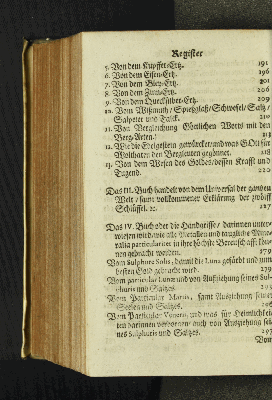 Register
5. Von dem Kupffer-Ertz. 191
6. Von dem Eisen-Ertz. 196
7. Von dem Bley-Ertz. 201
8. Von dem Zinn-Ertz. 206
9. Von dem Quecksilber-Ertz. 209
10. Von Wißmuth/ Spießglaß/ Schwefel/ Saltz/
Salpeter und Talck.
11. Von Vergleichung Göttlichen Worts mit den
Berg-Arten.
12. Wie die Edelgestein gewürcket/ und was GOtt für
Wolthaten den Bergleuten gegönnet. 218
13. Von dem Wesen des Goldes/ dessen Krafft und
Tugend. 220
Das III. Buch handelt von dem Universal der gantzen
Welt/ samt vollkommener Erklärung der zwölff
Schlüssel. 227
Das IV. Buch oder die Handgriffe/ darinnen unter-
wiesen wird/ wie alle Metallen und taugliche Mine-
ralia particulariter in ihre höchste Bereitschafft kön-
nen gebracht werden. 279
Vom Sulphure Solis, damit die Luna gefärbt und zum
besten Gold gebracht wird. 279
Vom particular Lunæ und von Ausziehung seines Sul-
phuris und Saltzes.
Vom Particular Martis, samt Ausziehung seines
Seelen und Saltzes.
Vom Particular Veneris, und was für Heimlichkei-
ten darinnen verborgen/ auch von Ausziehung sei-
nes Sulphuris und Saltzes. 297
Vom